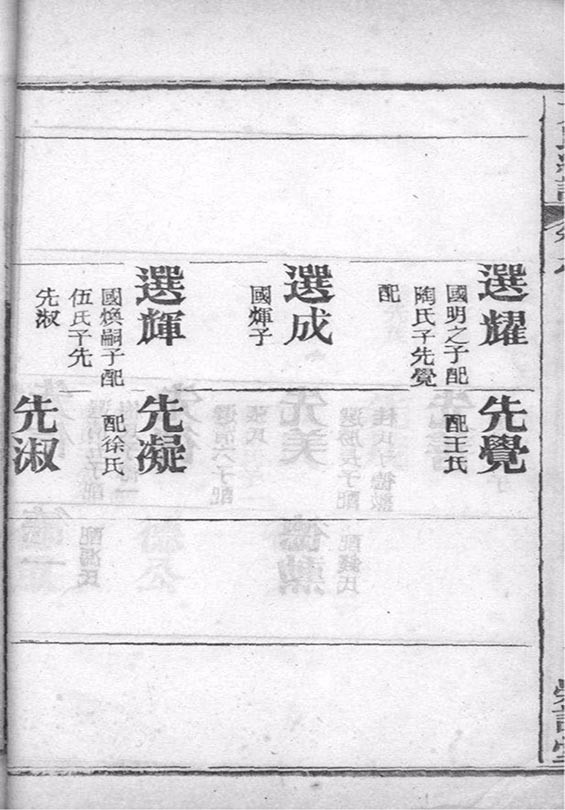 選耀
國明之子配
陶氏子先覺
配
選成
國煇子
選輝
國煥嗣子配
伍氏子先
先淑
先覺
配王氏
先凝
配徐氏
先淑